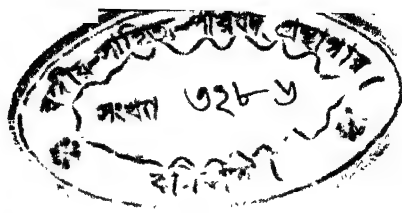 বঙ্গীয়-সাহিত্য-পরিষদ গ্রন্থাগার
সংখ্যা ৩২৮৬